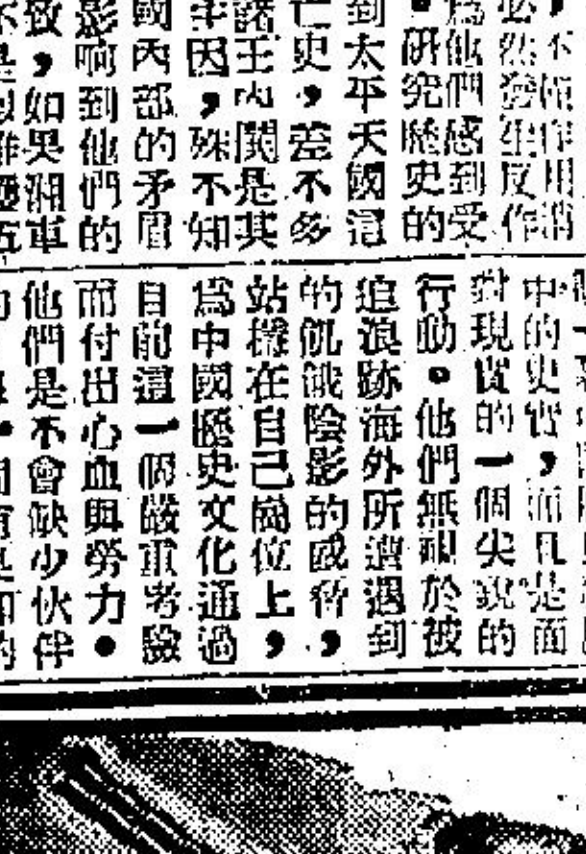 ，不作用消
必然發生反作
為他們感到受
。研究歷史的
到太平天國這
亡史，差不多
諸王內鬨是其
主因，殊不知
國內部的矛盾
影响到他們的
致，如果湘軍
中的史實，而且是面
對現實的一個尖銳的
行動。他們無視於被
迫浪跡海外所遭遇到
的飢餓陰影的威脅，
站穩在自己崗位上，
爲中國歷史文化通過
目前這一個嚴重考驗
而付出心血與勞力。
他們是不會缺少伙伴